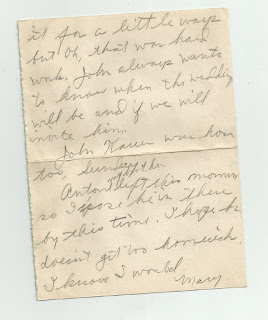 it for a little ways
but Oh, that was hard
work. John always wants
to know when the wedding
will be and if we will
invite him.
John was home
too, Sunday
left this morning
so I 'spose he is there
by this time. I hope he
doesn't get too homesick.
I know I would.
Mary.